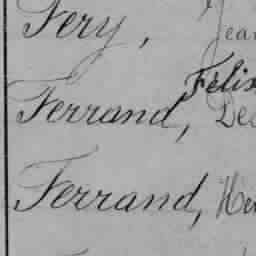 Fery, Jean
Félix
Ferrand,
Ferrand,